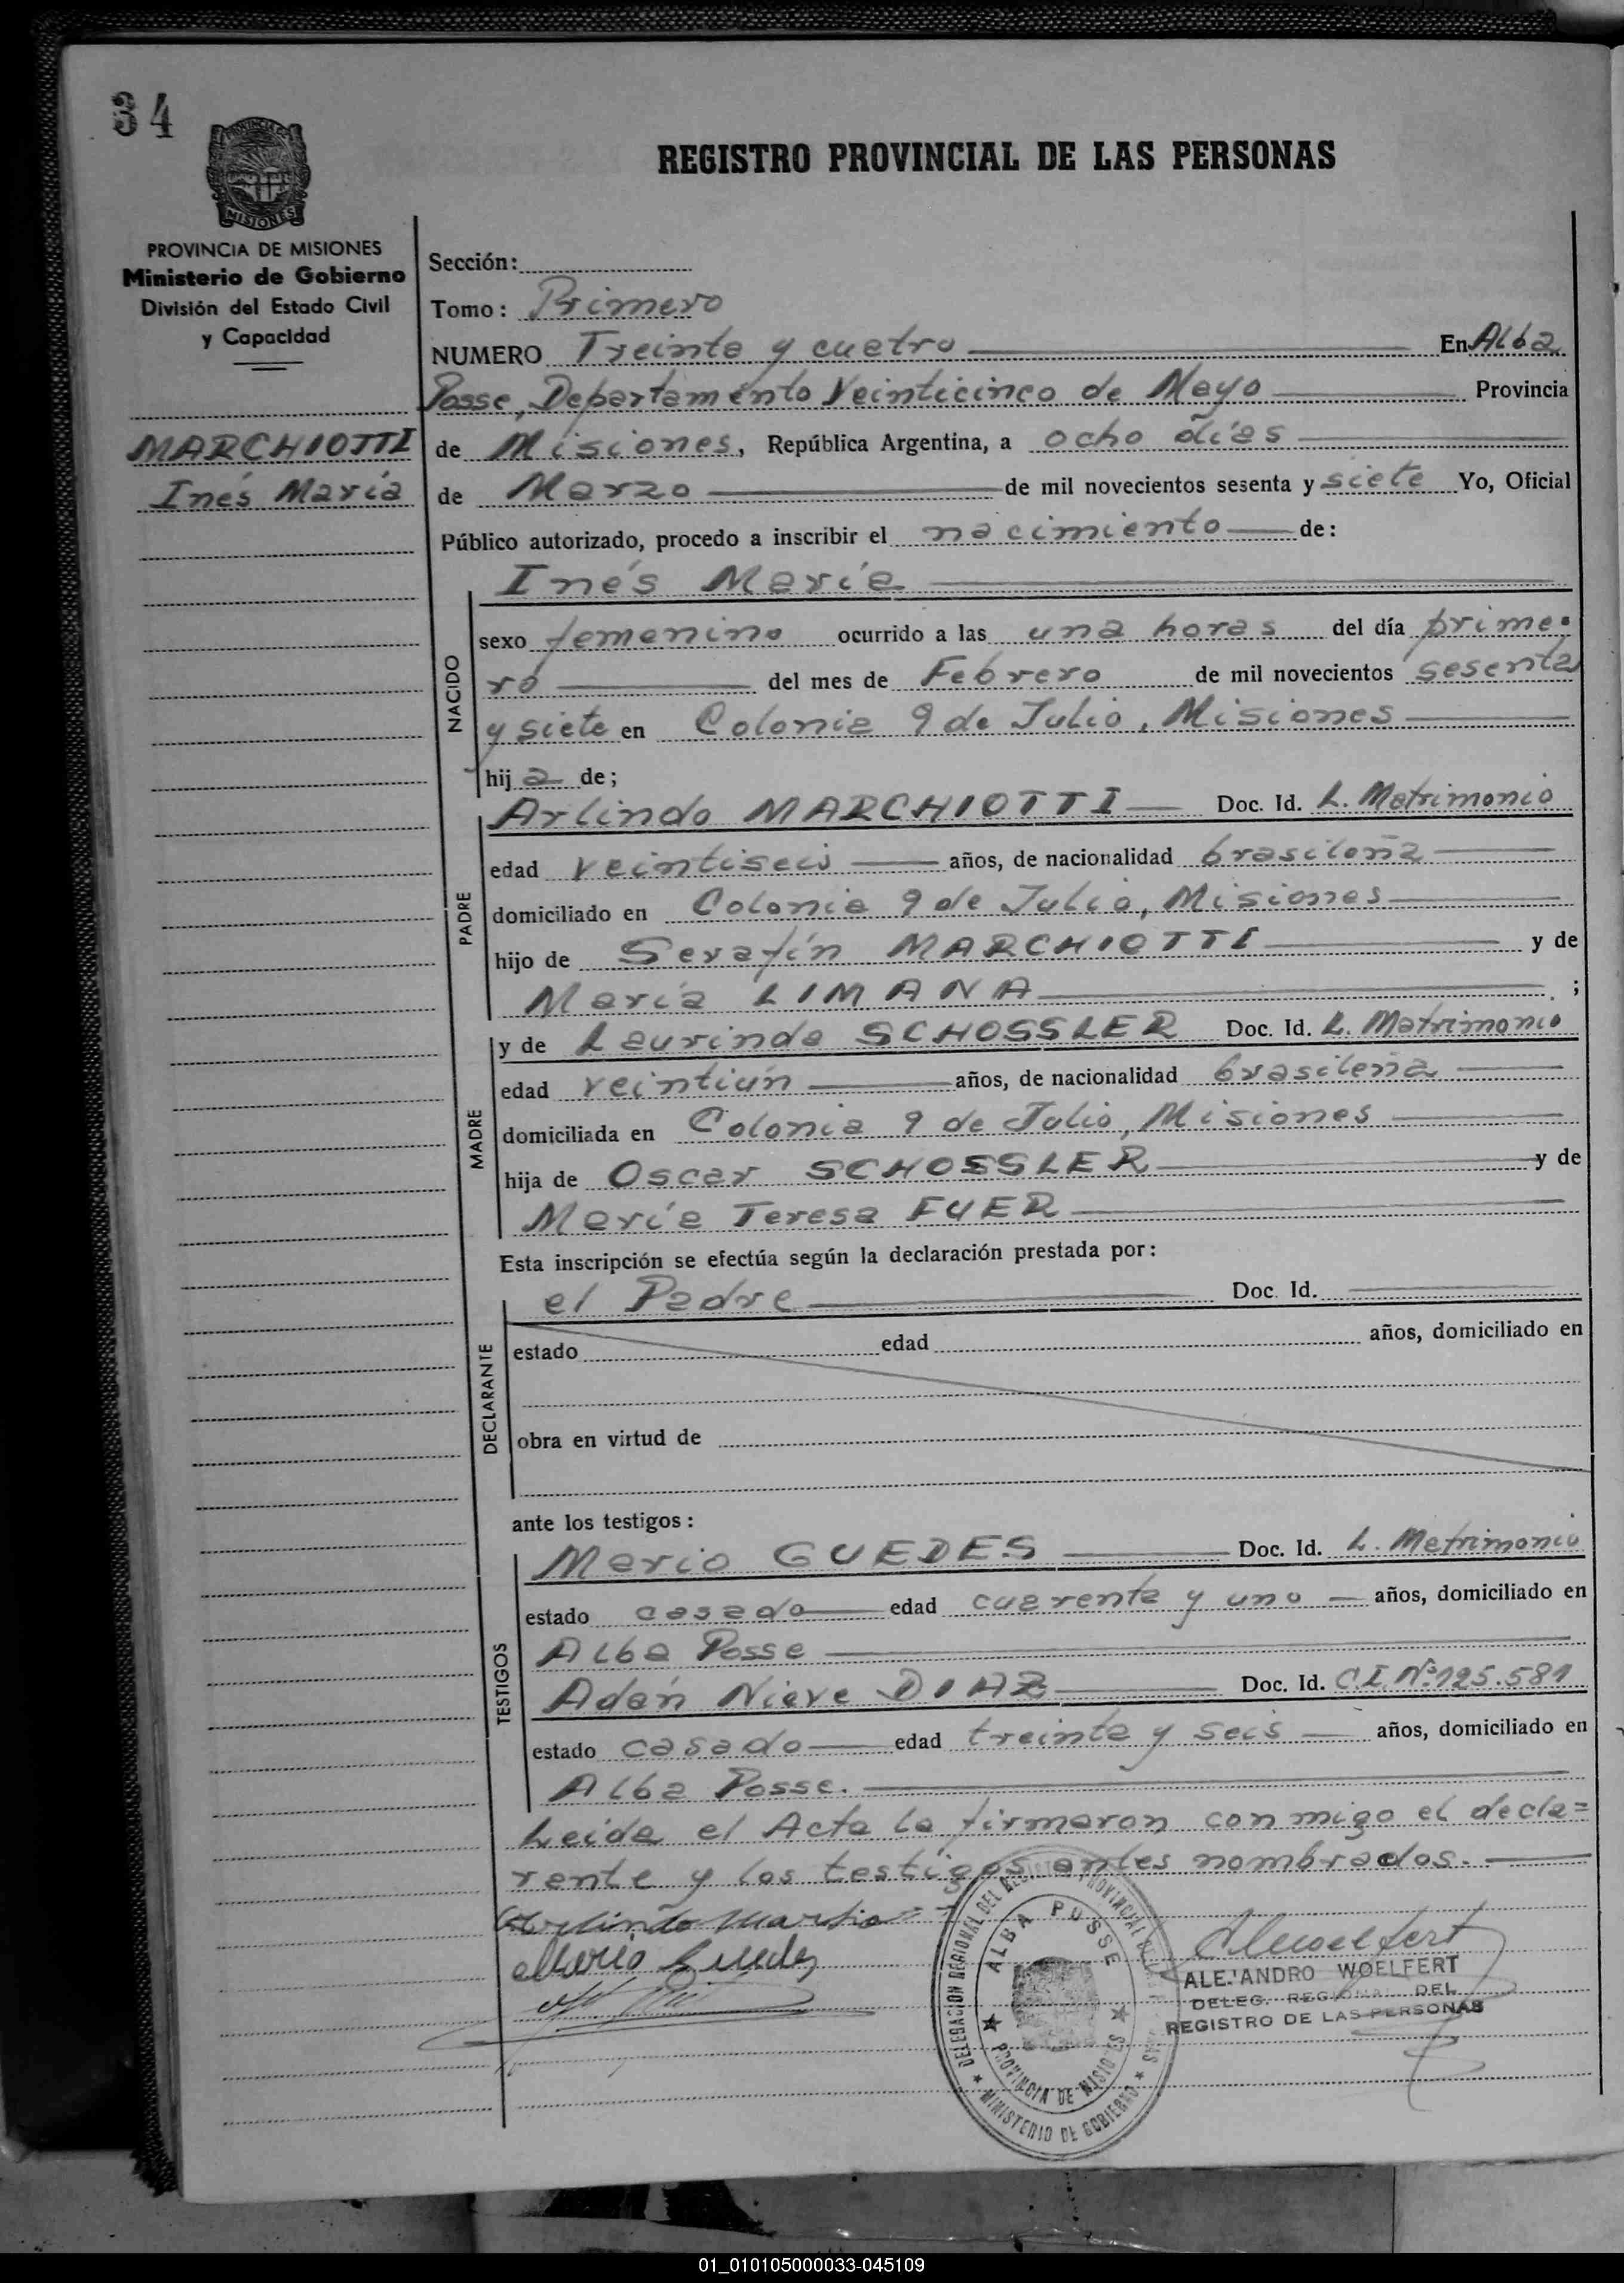 34
PROVINCIA DE
MISIONES
REGISTRO PROVINCIAL DE LAS PERSONAS
PROVINCIA DE MISIONES
Ministerio de Gobierno
División del Estado Civil
y Capacidad
MARCHIOTTI
Inés María
Sección:
Tomo: Primero
NUMERO Treinta y cuatro En Alba
Posse, Departamento Veinticinco de Mayo Provincia
de Misiones, República Argentina, a ocho días
de Marzo de mil novecientos sesenta y siete Yo, Oficial
Público autorizado, procedo a inscribir el nacimiento de:
Inés María
NACIDO
sexo femenino ocurrido a las una horas del día prime-
ro del mes de Febrero de mil novecientos sesenta
y siete en Colonia 9 de Julio, Misiones
hij a de;
PADRE
Arlindo MARCHIOTTI Doc. Id. L. Matrimonio
edad veintiseis años, de nacionalidad brasileña
domiciliado en Colonia 9 de Julio, Misiones
hijo de Serafín MARCHIOTTI y de
María LIMANA ;
MADRE
y de Laurinda SCHOSSLER Doc. Id. L. Matrimonio
edad veintiún años, de nacionalidad brasileña
domiciliada en Colonia 9 de Julio, Misiones
hija de Oscar SCHOSSLER y de
María Teresa FUER
Esta inscripción se efectúa según la declaración prestada por:
DECLARANTE
el Padre Doc. Id.
estado edad años, domiciliado en
obra en virtud de
ante los testigos:
TESTIGOS
Mario GUEDES Doc. Id. L. Matrimonio
estado casado edad cuarenta y uno años, domiciliado en
Alba Posse
Adán Nieve DIAZ Doc. Id. C.I. Nº 125.581
estado casado edad treinta y seis años, domiciliado en
Alba Posse.
Leida el Acta la firmaron conmigo el decla=
rante y los testigos antes nombrados.
Mario Guedes
DELEGACION REGIONAL DEL REGISTRO PROVINCIAL DE LAS PERSONAS
ALBA POSSE
PROVINCIA DE MISIONES
MINISTERIO DE GOBIERNO
AWoelfert
ALEJANDRO WOELFERT
DELEG. REGIONAL DEL
REGISTRO DE LAS PERSONAS
01_010105000033-045109